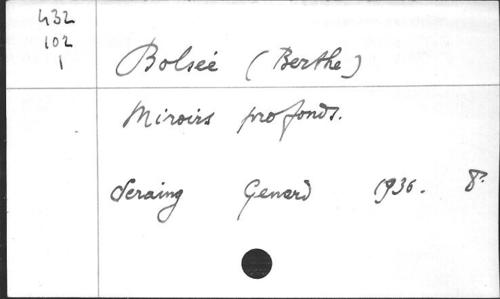 432
102
1
Bolsée (Berthe)
Miroirs profonds.
Seraing Genard 1936. 8°